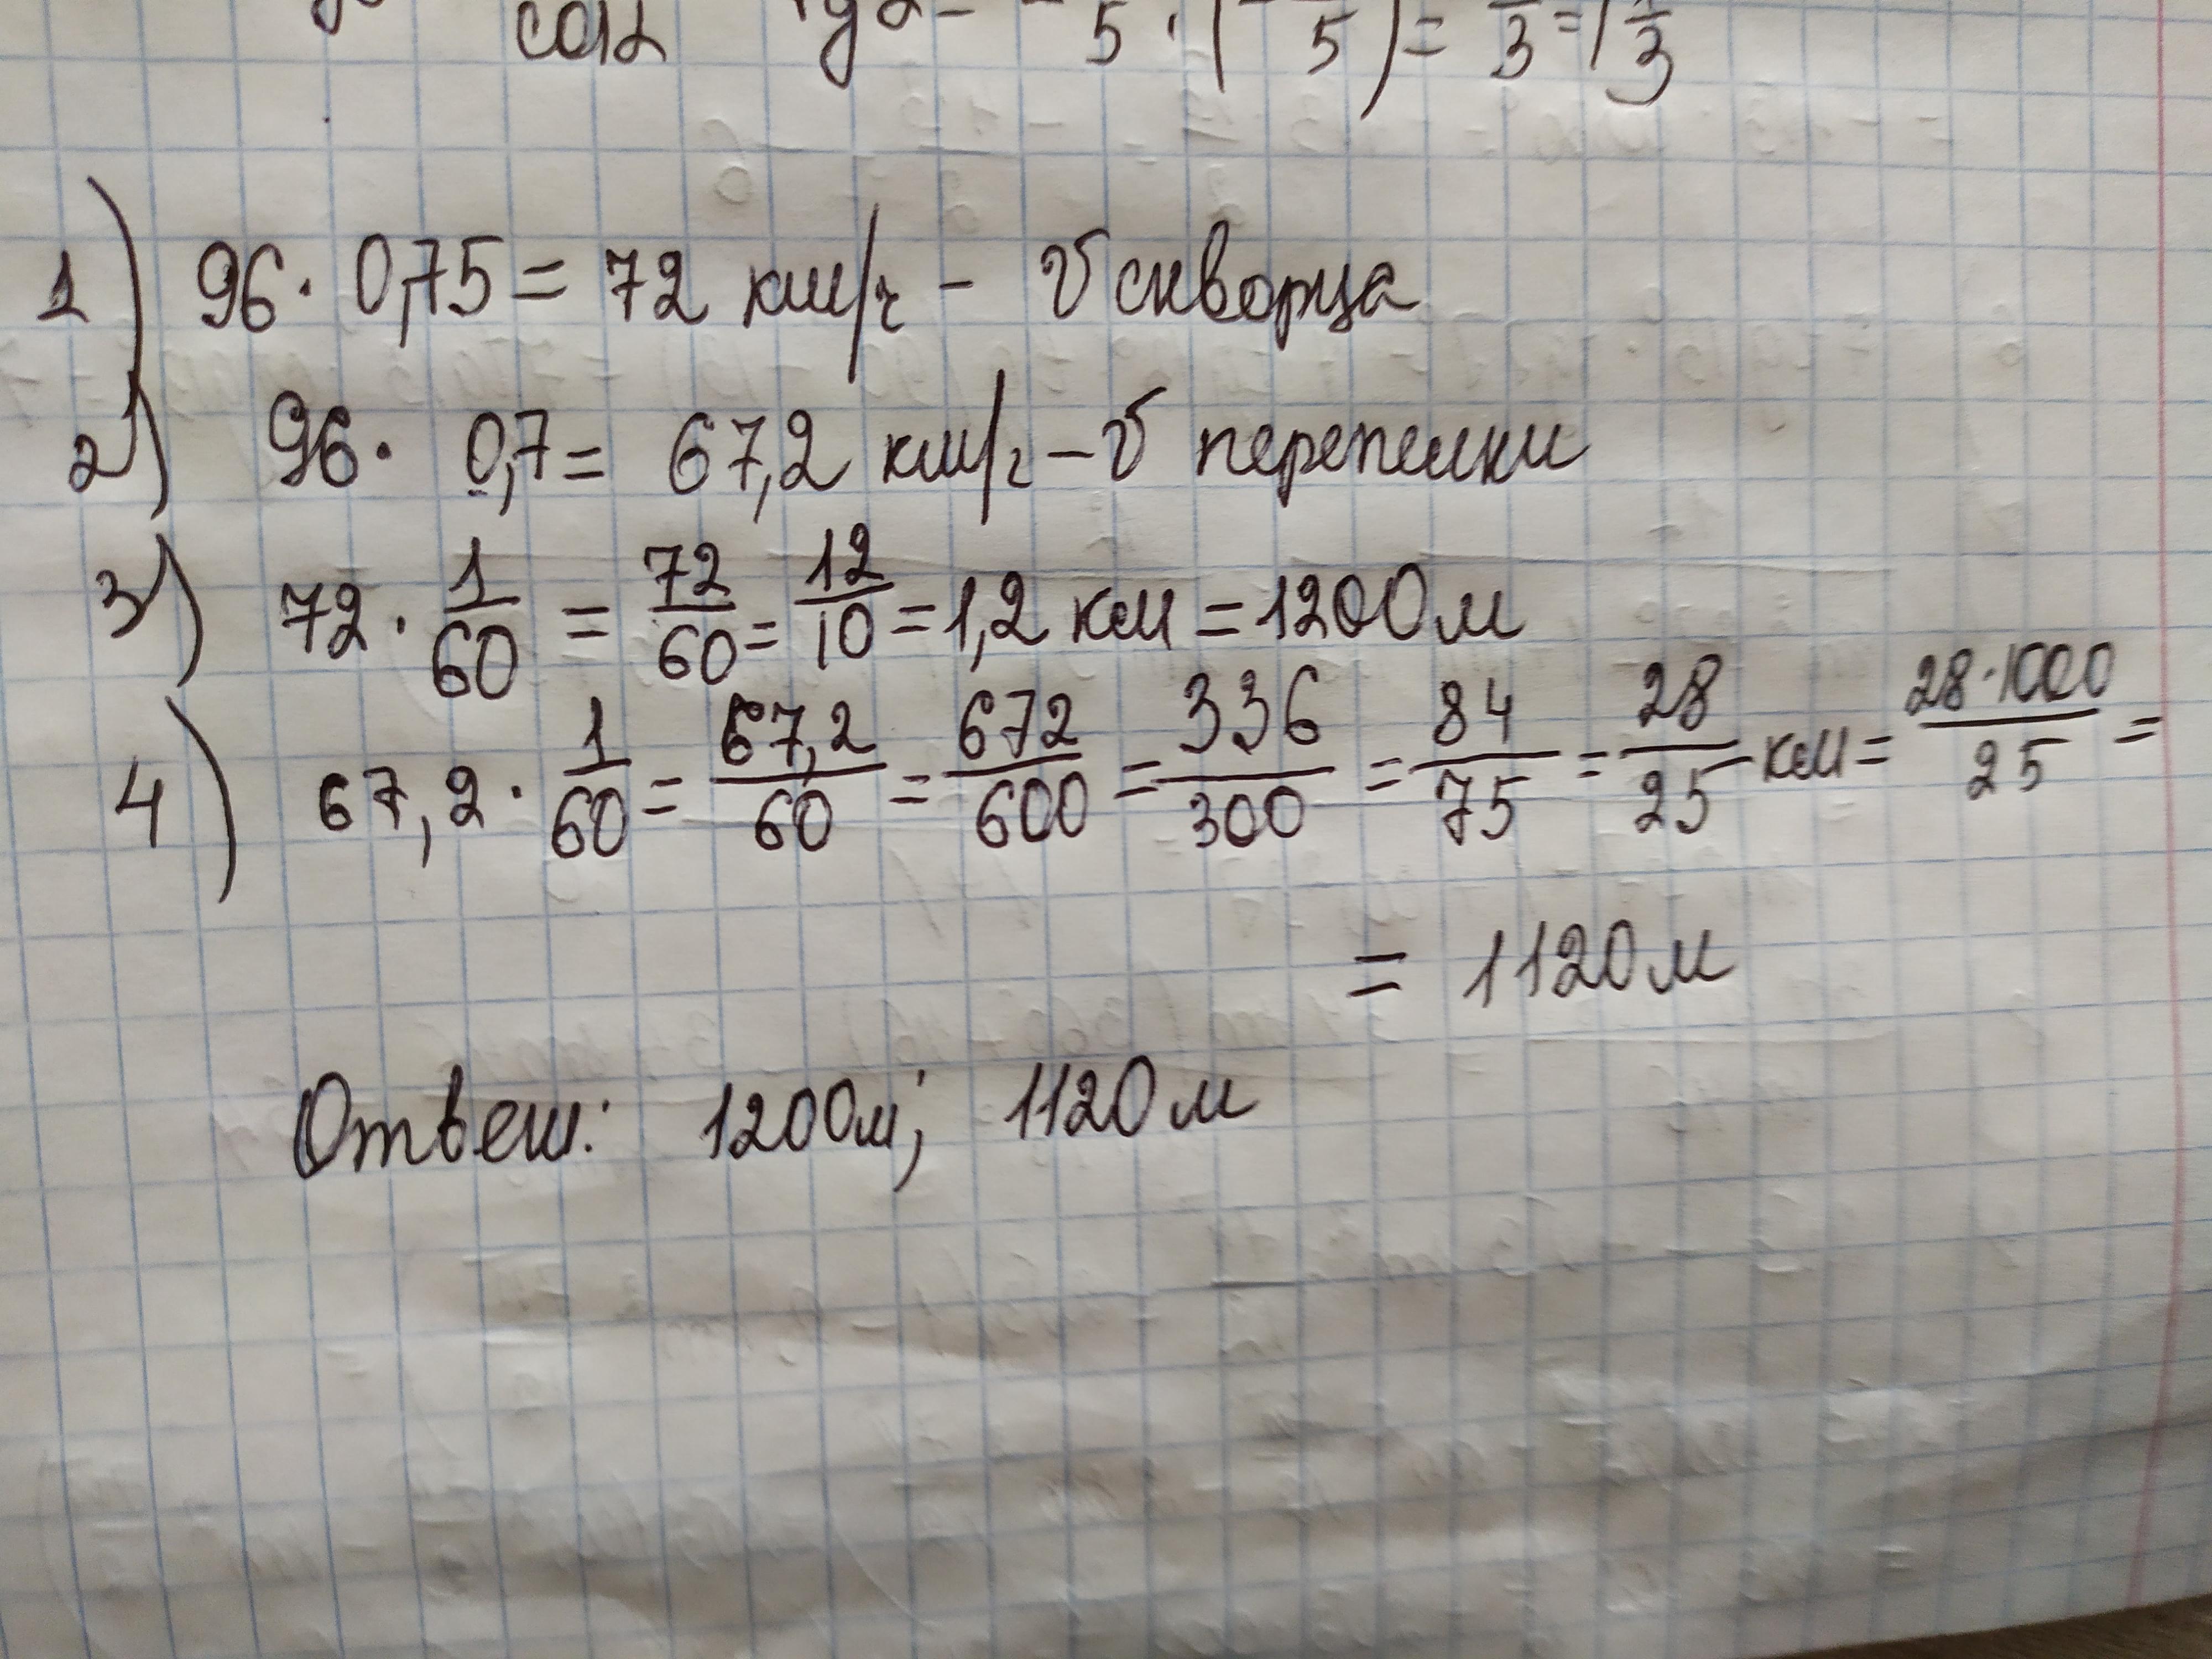 cosα tgα = - 5 · (- 5) = 3 = 1 1/3
1) 96 · 0,75 = 72 км/ч - V скворца
2) 96 · 0,7 = 67,2 км/ч - V перепелки
3) 72 · 1/60 = 72/60 = 12/10 = 1,2 км = 1200 м
4) 67,2 · 1/60 = 67,2/60 = 672/600 = 336/300 = 84/75 = 28/25 км = 28·1000/25 =
= 1120 м
Ответ: 1200 м; 1120 м